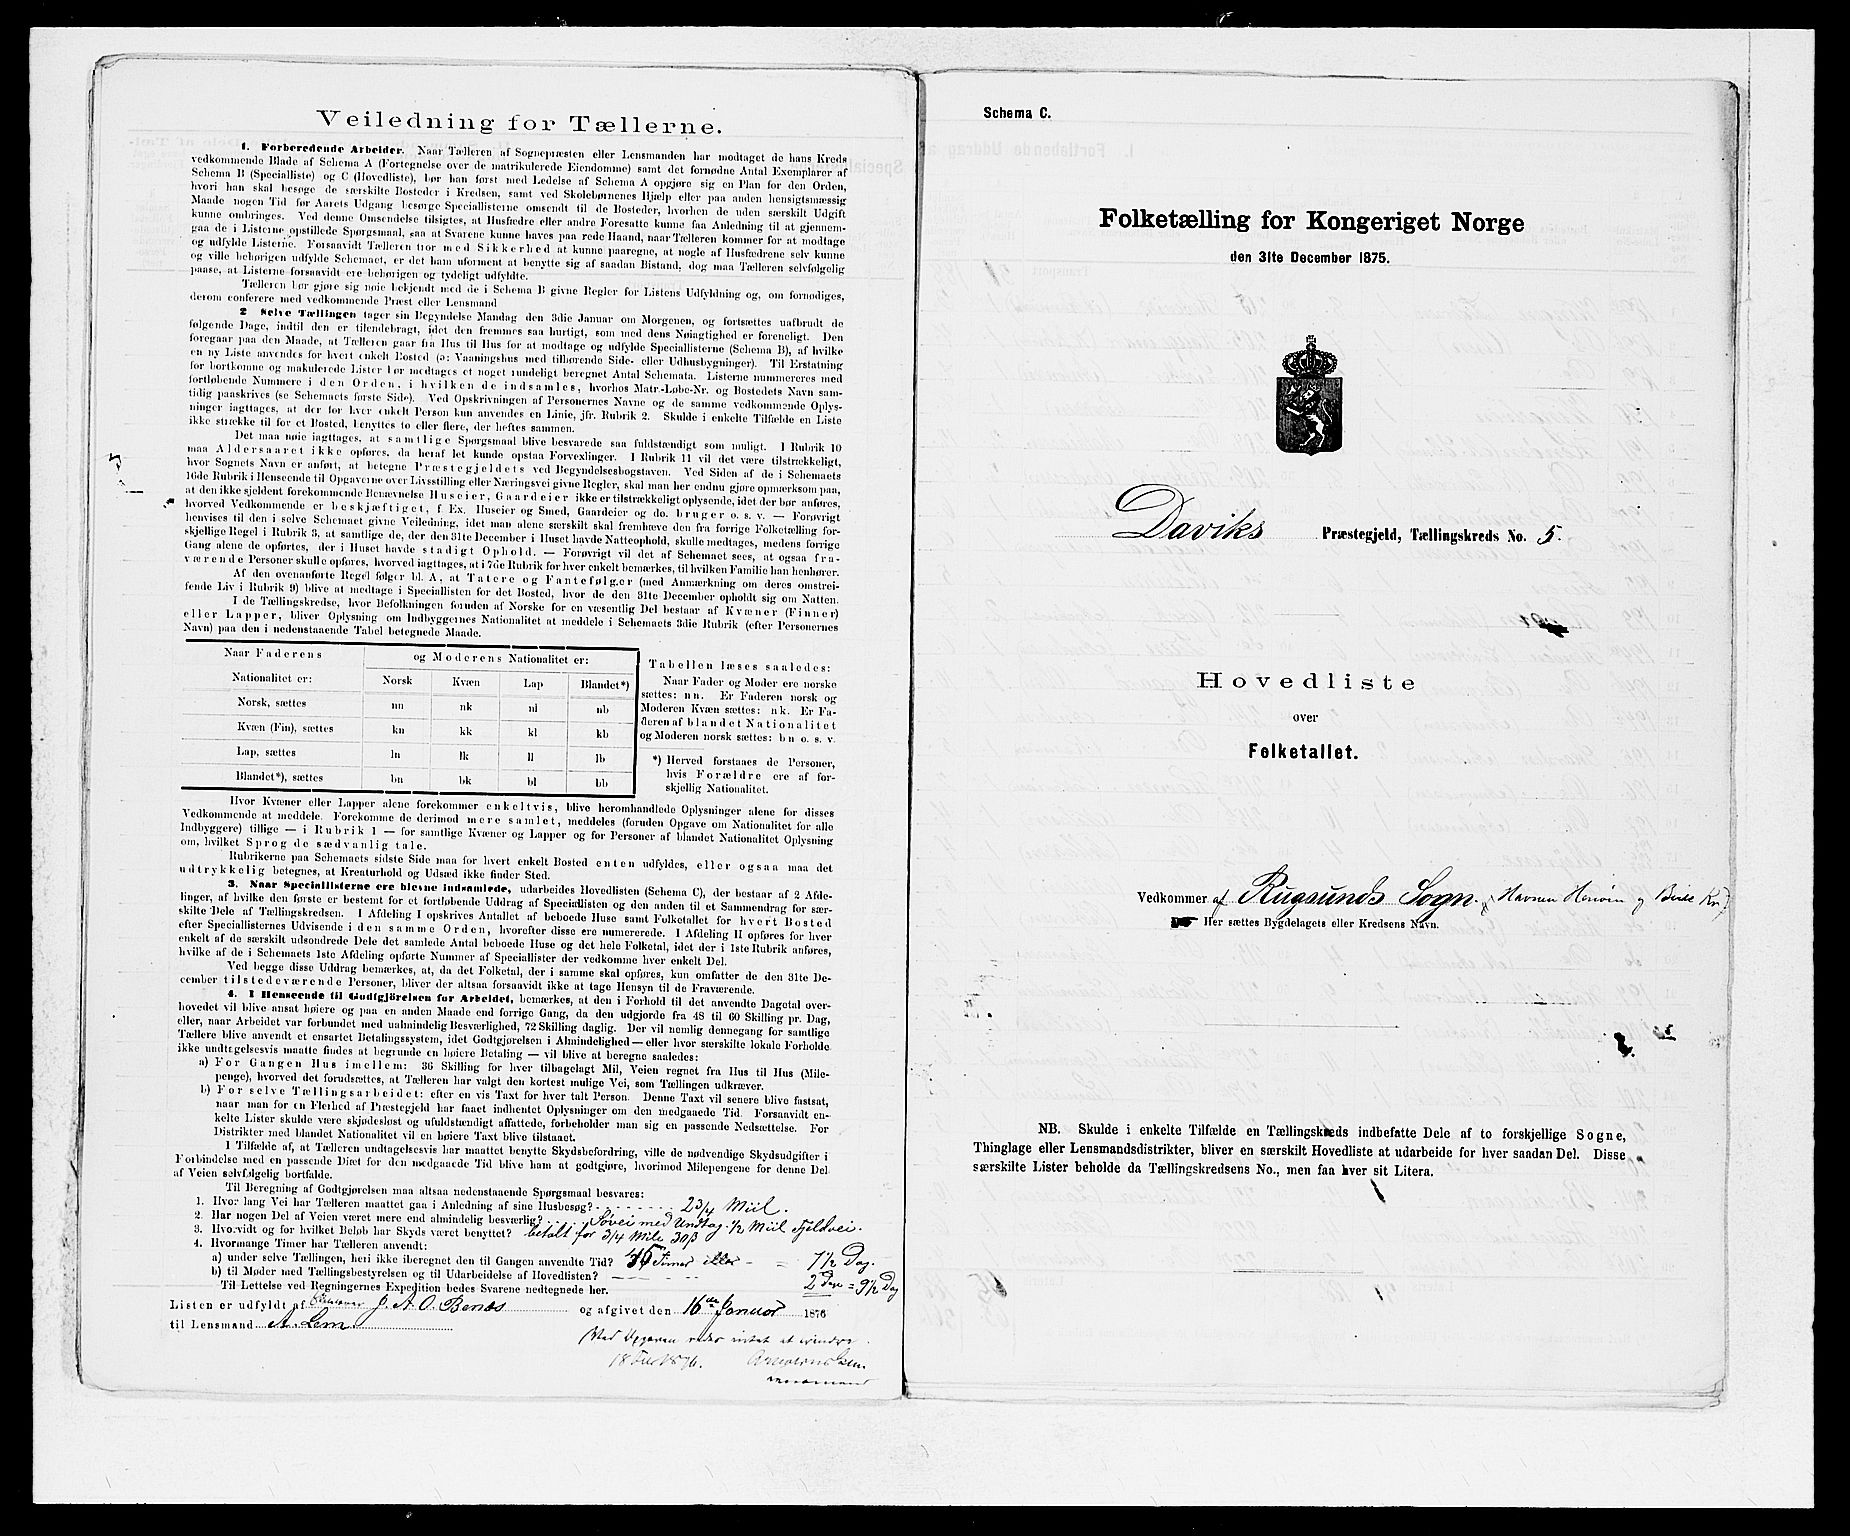 Veiledning for Tællerne.
1. Forberedende Arbeider. Naar Tælleren af Sognepræsten eller Lensmanden har modtaget de hans Kreds
vedkommende Blade af Schema A (Fortegnelse over de matrikulerede Eiendomme) samt det fornødne Antal Exemplarer af
Schema B (Specialliste) og C (Hovedliste), bør han først med Ledelse af Schema A opgjøre sig en Plan for den Orden,
hvori han skal besøge de særskilte Bosteder i Kredsen, samt ved Skolebørnenes Hjælp eller paa anden hensigtsmæssig
Maade nogen Tid før Aarets Udgang besørge Speciallisterne omsendt til de Bosteder, hvorhen de uden særskilt Udgift
kunne ombringes. Ved denne Omsendelse tilsigtes, at Husfædre eller andre Foresatte kunne faa Anledning til at gjennem-
gaa de i Listerne opstillede Spørgsmaal, saa at Svarene kunne haves paa rede Haand, naar Tælleren kommer for at modtage
og udfylde Listerne. Forsaavidt Tælleren tror med Sikkerhed at kunne paaregne, at nogle af Husfædrene selv kunne
og ville behørigen udfylde Schemaet, er det ham uforment at benytte sig af saadan Bistand, dog maa Tælleren selvfølgelig
paase, at Listerne forsaavidt ere behørigen og tydeligt udfyldte.
Tælleren bør gjøre sig nøie bekjendt med de i Schema B givne Regler for Listens Udfyldning og, om fornødiges,
derom conferere med vedkommende Præst eller Lensmand
2 Selve Tællingen tager sin Begyndelse Mandag den 3die Januar om Morgenen, og fortsættes uafbrudt de
følgende Dage, indtil den er tilendebragt, idet den fremmes saa hurtigt, som med dens Nøiagtighed er foreneligt. Den
foregaar paa den Maade, at Tælleren gaar fra Hus til Hus for at modtage og udfylde Speciallisterne (Schema B), af hvilke
en ny Liste anvendes for hvert enkelt Bosted (o: Vaaningshus med tilhørende Side- eller Udhusbygninger). Til Erstatning
for bortkomne og makulerede Lister bør medtages et noget rundeligt beregnet Antal Schemata. Listerne nummereres med
fortløbende Nummere i den Orden, i hvilken de indsamles, hvorhos Matr.-Løbe-Nr. og Bostedets Navn sam-
tidig paaskrives (se Schemaets første Side). Ved Opskrivningen af Personernes Navne og de samme vedkommende Oplys-
ninger iagttages, at der for hver enkelt Person kun anvendes en Linie, jfr. Rubrik 2. Skulde i enkelte Tilfælde en Liste
ikke strække til for et Bosted, benyttes to eller flere, der heftes sammen.
Det maa nøie iagttages, at samtlige Spørgsmaal blive besvarede saa fuldstændigt som muligt. I Rubrik 10
maa Aldersaaret ikke opføres, da heraf let kunde opstaa Forvexlinger. I Rubrik 11 vil det være tilstrækkeligt,
hvor Sognets Navn er anført, at betegne Præstegjeldets ved Begyndelsesbogstaven. Ved Siden af de i Schemaets
16de Rubrik i Henseende til Opgaverne over Livsstilling eller Næringsvei givne Regler, skal man her endnu gjøre opmærksom paa,
at den ikke sjeldent forekommende Benævnelse Huseier, Gaardeier ikke er tilstrækkeligt oplysende, idet der bør anføres,
hvorved Vedkommende er beskjæftiget, f. Ex. Huseier og Smed, Gaardeier og do. bruger o. s. v. — Forøvrigt
henvises til den i selve Schemaet givne Veiledning, idet man alene særskilt skal fremhæve den fra forrige Folketælling for-
skjellige Regel i Rubrik 3, at samtlige de, der den 31te December i Huset havde Natteophold, skulle medtages, medens forrige
Gang alene de opførtes, der i Huset havde stadigt Ophold. — Forøvrigt vil det af Schemaet sees, at ogsaa fra-
værende Personer skulle opføres, hvorved iagttages, at i 7de Rubrik for hver enkelt bemærkes, til hvilken Familie han henhører.
Af den ovenanførte Regel følger bl. A. at Tatere og Fantefølger (med Anmærkning om deres omstrei-
fende Liv i Rubrik 9) blive at medtage i Speciallisten for det Bosted, hvor de den 31te December opholdt sig om Natten.
I de Tællingskredse, hvor Befolkningen foruden af Norske for en væsentlig Del bestaar af Kvæner (Finner)
eller Lapper, bliver Oplysning om Indbyggernes Nationalitet at meddele i Schemaets 3die Rubrik (efter Personernes
Navn) paa den i nedenstaaende Tabel betegnede Maade.
Naar Faderens og Moderens Nationalitet er:
Nationalitet er: Norsk Kvæn Lap Blandet*)
Norsk, sættes nn nk nl nb
Kvæn (Fin), sættes kn kk kl kb
Lap, sættes ln lk ll lb
Blandet*), sættes bn bk bl bb
Tabellen læses saaledes:
Naar Fader og Moder ere norske
sættes: nn. Er Faderen norsk og
Moderen Kvæn sættes: nk. Er Fa-
deren af blandet Nationalitet
og Moderen norsk sættes: bn o. s. v.
*) Herved forstaaes de Personer,
hvis Forældre ere af for-
skjellig Nationalitet.
Hvor Kvæner eller Lapper alene forekommer enkeltvis, blive heromhandlede Oplysninger alene for disses
Vedkommende at meddele. Forekomme de derimod mere samlet, meddeles (foruden Opgave om Nationalitet for alle
Indbyggere) tillige — i Rubrik 1 — for samtlige Kvæner og Lapper og for Personer af blandet Nationalitet Oplysning
om, hvilket Sprog de sædvanlig tale.
Rubrikerne paa Schemaets sidste Side maa for hvert enkelt Bosted enten udfyldes, eller ogsaa maa det
udtrykkelig betegnes, at Kreaturhold og Udsæd ikke finder Sted.
3. Naar Speciallisterne ere blevne indsamlede, udarbeides Hovedlisten (Schema C), der bestaar af 2 Afde-
linger, af hvilke den første er bestemt for et fortløbende Uddrag af Speciallisten og den anden til et Sammendrag for sær-
skilte Dele af Tællingskredsen. I Afdeling I opskrives Antallet af beboede Huse samt Folketallet for hvert Bosted
efter Speciallisternes Udvisende i den samme Orden, hvorefter disse ere nummererede. I Afdeling II opføres for hver
enkelt af de særskilt udsondrede Dele det samlede Antal beboede Huse og det hele Folketal, idet der i 1ste Rubrik anføres,
hvilke af de i Schemaets 1ste Afdeling opførte Nummer af Speciallister der vedkomme hver enkelt Del.
Ved begge disse Uddrag bemærkes, at, da det Folketal, der i samme skal opføres, kun omfatter de den 31te De-
cember tilstedeværende Personer, bliver der altsaa forsaavidt ikke at tage Hensyn til de Fraværende.
4. I Henseende til Godtgjörelsen for Arbeidet, bemærkes, at den i Forhold til det anvendte Dagetal over-
hovedet vil blive ansat høiere og paa en anden Maade end forrige Gang, da den udgjorde fra 48 til 60 Skilling pr. Dag,
eller, naar Arbeidet var forbundet med ualmindelig Besværlighed, 72 Skilling daglig. Der vil nemlig dennegang for samtlige
Tællere blive anvendt et ensartet Betalingssystem, idet Godtgjörelsen i Almindelighed — eller hvor særskilte lokale Forholde
ikke undtagelsesvis maatte findes at begrunde en høiere Betaling — vil blive at beregne saaledes:
a) For Gangen Hus imellem: 36 Skilling for hver tilbagelagt Mil, Veien regnet fra Hus til Hus (Mile-
penge), hvorved det forudsættes, at Tælleren har valgt den kortest mulige Vei, som Tællingen udkræver.
b) For selve Tællingsarbeidet: efter en vis Taxt for hver talt Person. Denne Taxt vil senere blive fastsat,
naar man for en Flerhed af Præstegjeld har faaet indhentet Oplysninger om den medgaaede Tid. Forsaavidt en-
kelte Lister skulde være skjødesløst og ufuldstændigt affattede, forbeholder man sig en passende Nedsættelse. For
Distrikter med blandet Nationalitet vil en høiere Taxt blive tilstaaet.
I Tilfælde af, at Tælleren undtagelsesvis har maattet benytte Skydsbefordring, ville de nødvendige Skydsudgifter i
Forbindelse med en passende Diæt for den medgaaede Tid blive ham at godtgjøre, hvorimod Milepengene for denne Del
af Veien selvfølgelig bortfalde.
Til Beregning af Godtgjörelsen maa altsaa nedenstaaende Spørgsmaal besvares:
1. Hvor lang Vei har Tælleren maattet gaa i Anledning af sine Husbesøg? 2 3/4 Miil.
2. Har nogen Del af Veien været mere end almindelig besværlig? Søvei med Undtag. 1/2 Miil Fjeldvei.
3. Hvorvidt og for hvilket Beløb har Skyds været benyttet? betalt for 3/4 Mile 30 ß
4. Hvormange Timer har Tælleren anvendt:
a) under selve Tællingen, heri ikke iberegnet den til Gangen anvendte Tid? Timer eller = 7 1/2 Dag.
b) til Møder med Tællingsbestyrelsen og til Udarbeidelse af Hovedlisten? 2 Dage = 9 1/2 Dag
Til Lettelse ved Regningernes Expedition bedes Svarene nedtegnede her.
Listen er udfyldt af J. A. O. Benæs og afgivet den 16de Januar 1876
til Lensmand A. Lem
18 Feb 1876.
Schema C.
Folketælling for Kongeriget Norge
den 31te December 1875.
Daviks Præstegjeld, Tællingskreds No. 5.
Hovedliste
over
Folketallet.
Vedkommer af Rugsunds Sogn.
Her sættes Bygdelagets eller Kredsens Navn.
NB. Skulde i enkelte Tilfælde en Tællingskreds indbefatte Dele af to forskjellige Sogne,
Thinglage eller Lensmandsdistrikter, bliver en særskilt Hovedliste at udarbeide for hver saadan Del. Disse
særskilte Lister beholde da Tællingskredsens No., men faa hver sit Litera.